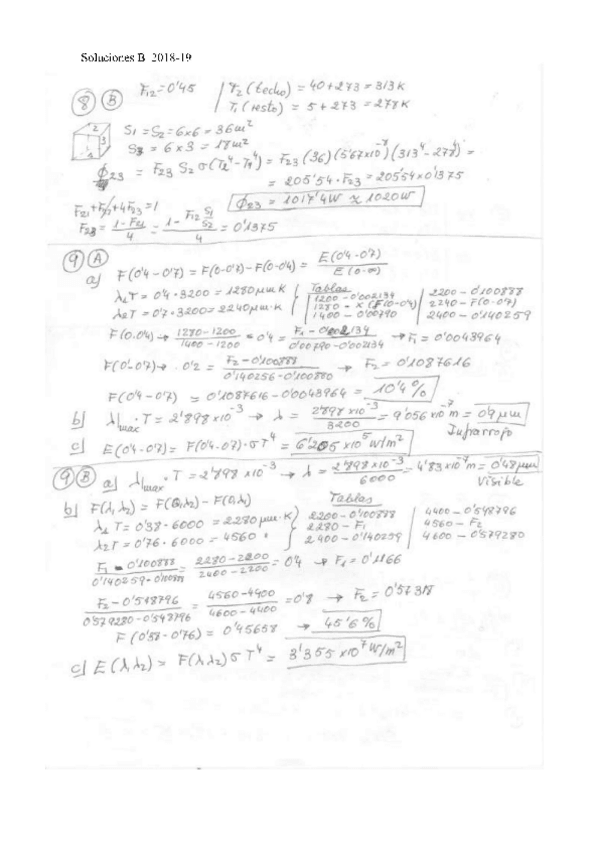 Soluciones B 2018-19
8 B F12 = 0'45 T2 (techo) = 40 + 273 = 313 K
T1 (resto) = 5 + 273 = 278 K
S1 = S2 = 6x6 = 36 m²
S3 = 6 x 3 = 18 m²
Φ23 = F23 S2 σ (T2⁴ - T1⁴) = F23 (36) (5'67x10⁻⁸) (313⁴ - 278⁴) =
= 205'54 · F23 = 205'54 x 0'1375
Φ23 = 1017'4 W ≈ 1020 W
F21 + F22 + 4F23 = 1
F23 = (1 - F21)/4 = (1 - F12 S1/S2)/4 = 0'1375
9 A
a) F(0'4 - 0'7) = F(0 - 0'7) - F(0 - 0'4) = E(0'4 - 0'7) / E(0 - ∞)
λ1 T = 0'4 · 3200 = 1280 μm K
λ2 T = 0'7 · 3200 = 2240 μm K
Tablas
1200 - 0'002134
1280 - x (F(0-0'4)
1400 - 0'00790
2200 - 0'100888
2240 - F(0-0'7)
2400 - 0'140259
F(0-0'4) → (1280 - 1200)/(1400 - 1200) = 0'4 = (F1 - 0'002134)/(0'00790 - 0'002134) → F1 = 0'0043964
F(0-0'7) → 0'2 = (F2 - 0'100888)/(0'140256 - 0'100880) → F2 = 0'1087616
F(0'4 - 0'7) = 0'1087616 - 0'0043964 = 10'4 %
b) λmax · T = 2'898 x10⁻³ → λ = 2'898 x10⁻³/3200 = 9'056 x10⁻⁷ m = 0'9 μm
Infrarrojo
c) E(0'4 - 0'7) = F(0'4 - 0'7) · σT⁴ = 6'205 x10⁵ W/m²
9 B a) λmax · T = 2'898 x10⁻³ → λ = 2'898 x10⁻³/6000 = 4'83 x10⁻⁷ m = 0'48 μm
Visible
b) F(λ1 λ2) = F(0,λ2) - F(0,λ1)
λ1 T = 0'38 · 6000 = 2280 μm·K
λ2 T = 0'76 · 6000 = 4560 "
Tablas
2200 - 0'100888
2280 - F1
2400 - 0'140259
4400 - 0'548796
4560 - F2
4600 - 0'579280
(F1 - 0'100888)/(0'140259 - 0'100888) = (2280 - 2200)/(2400 - 2200) = 0'4 → F1 = 0'1166
(F2 - 0'548796)/(0'579280 - 0'548796) = (4560 - 4400)/(4600 - 4400) = 0'8 → F2 = 0'57318
F(0'38 - 0'76) = 0'45658 → 45'6 %
c) E(λ1 λ2) = F(λ1 λ2) σ T⁴ = 3'355 x10⁷ W/m²